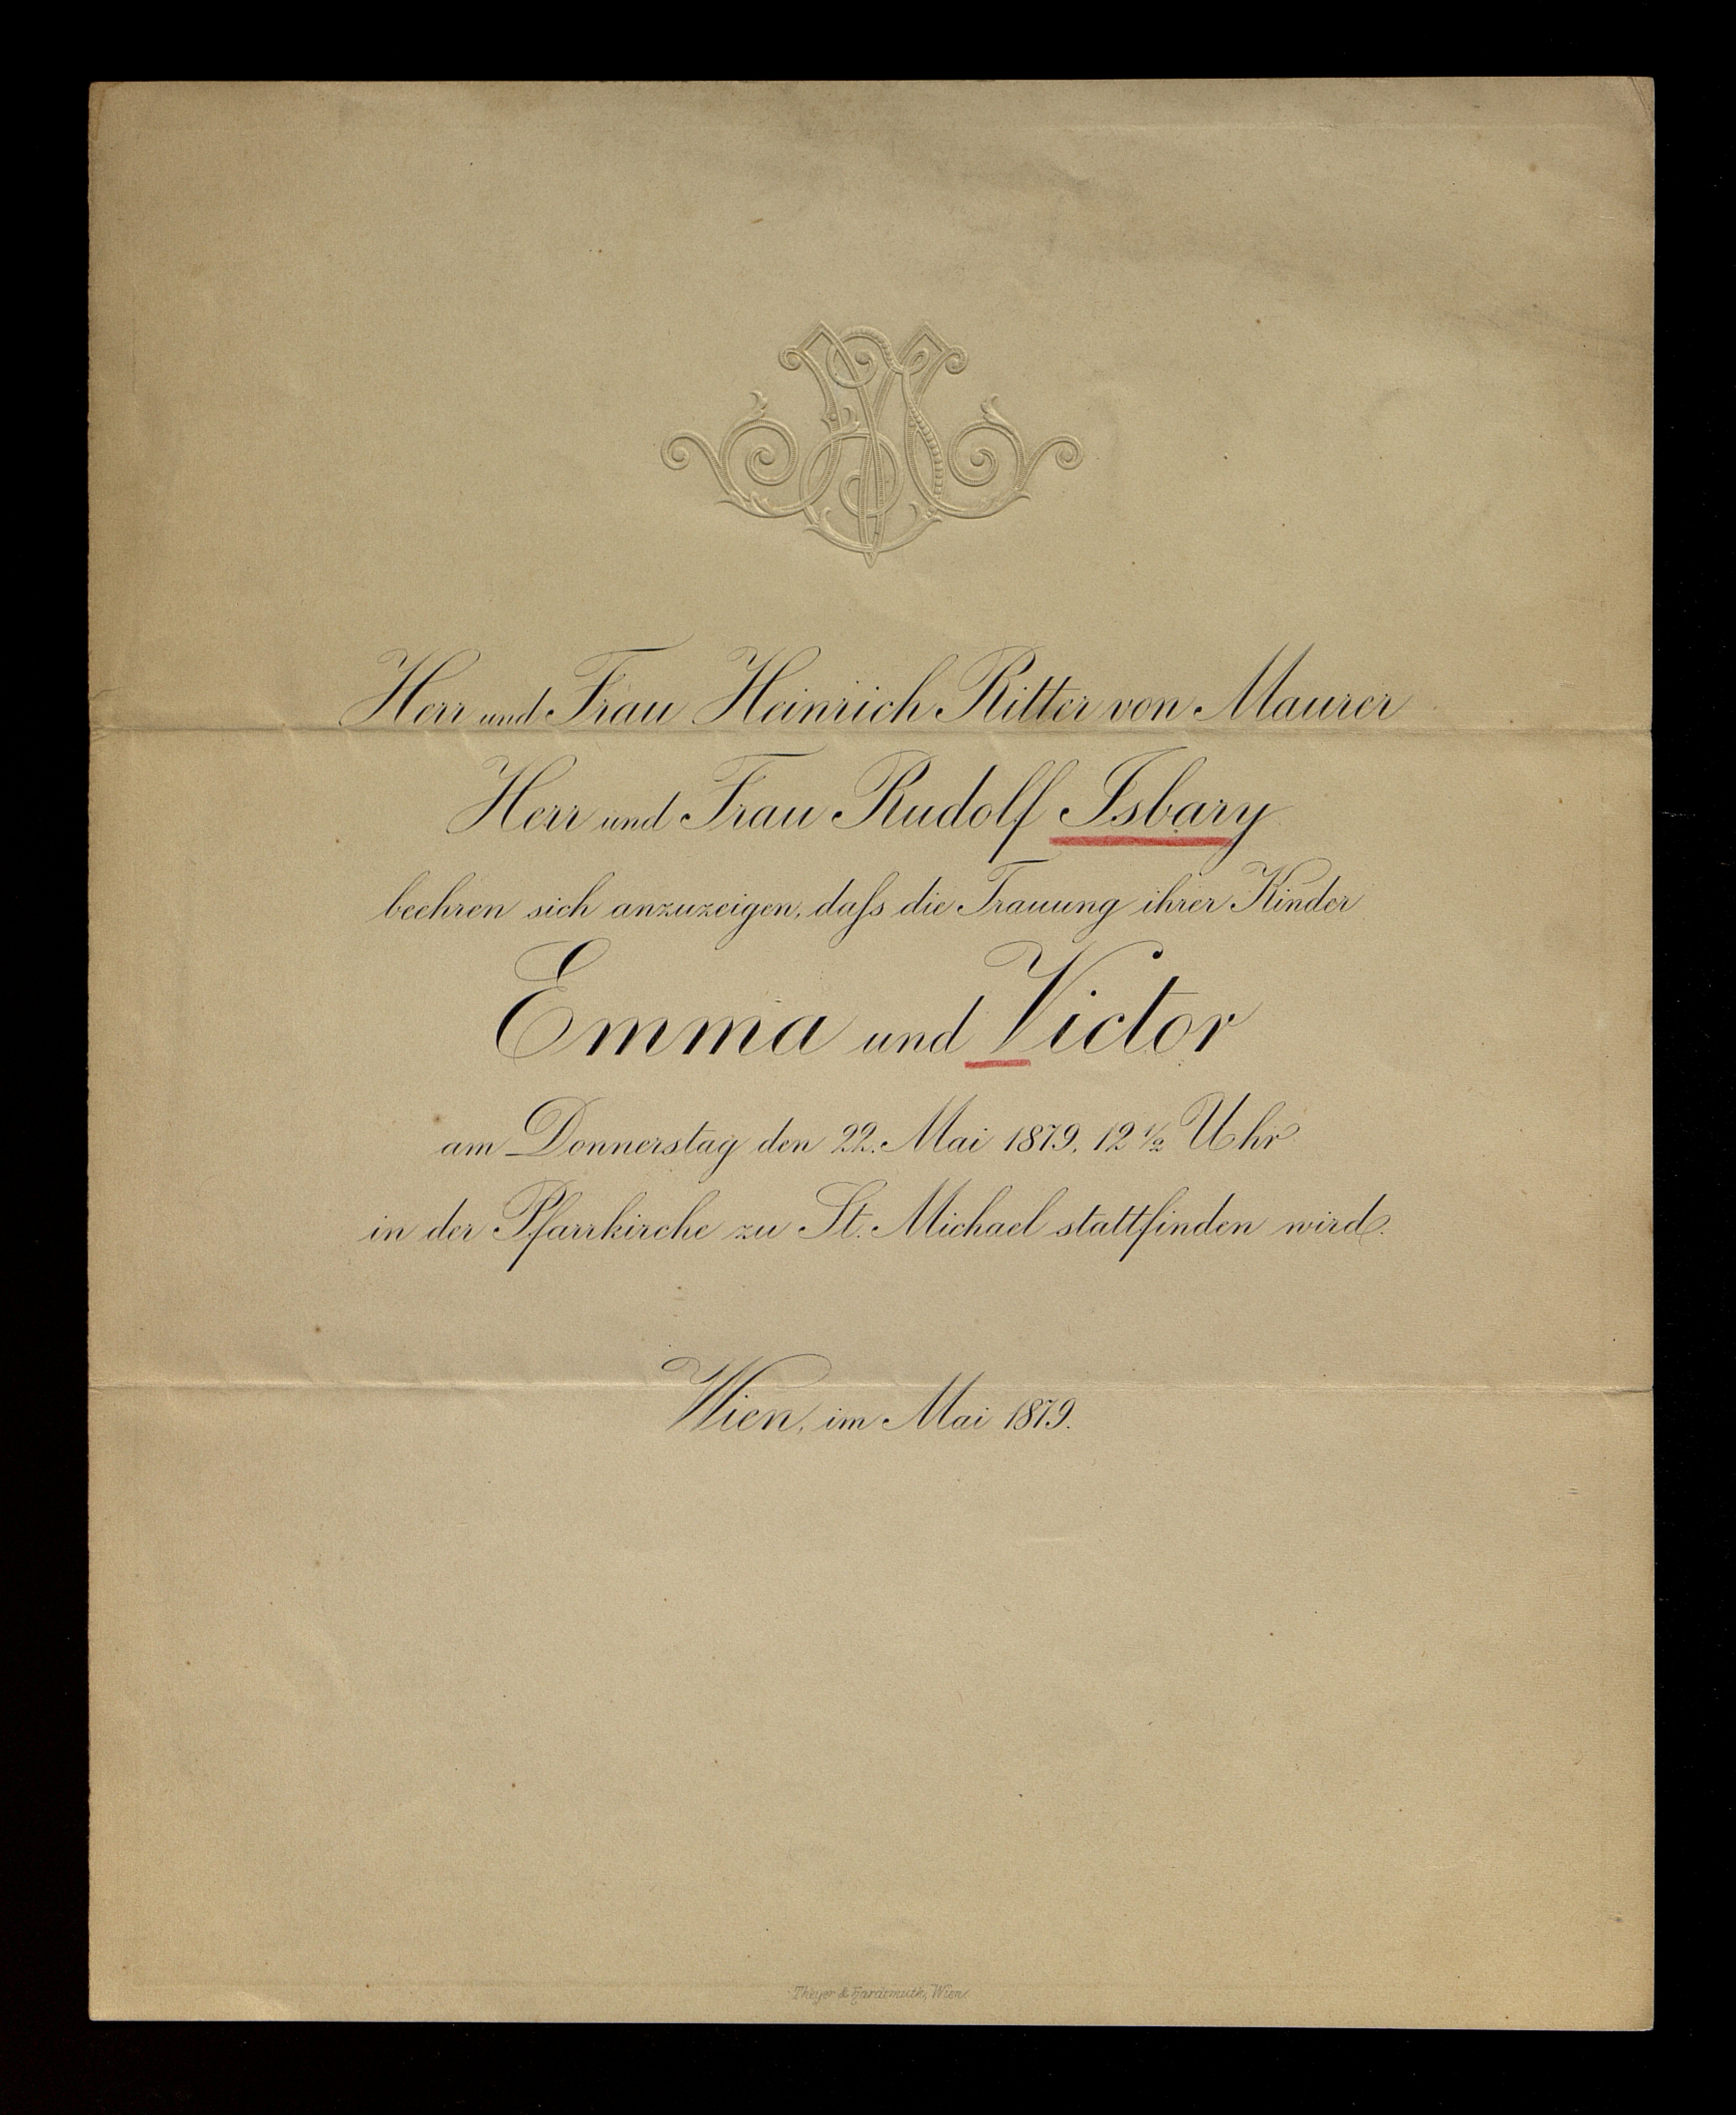 Herr und Frau Heinrich Ritter von Maurer
Herr und Frau Rudolf Isbary
beehren sich anzuzeigen, daſs die Trauung ihrer Kinder
Emma und Victor
am Donnerstag den 22. Mai 1879, 12 ½ Uhr
in der Pfarrkirche zu St. Michael stattfinden wird.
Wien, im Mai 1879.
Theyer & Hardtmuth, Wien